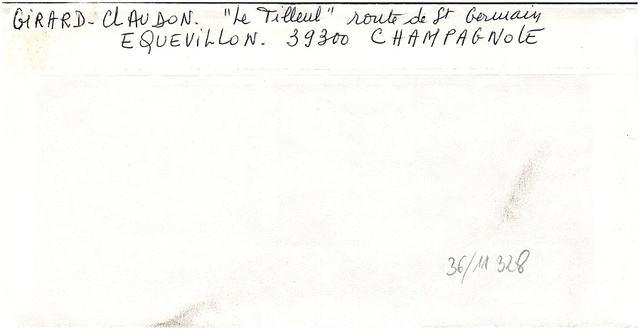 GIRARD-CLAUDON. "Le Tilleul" route de St Germain
EQUEVILLON. 39300 CHAMPAGNOLE
36/11 328